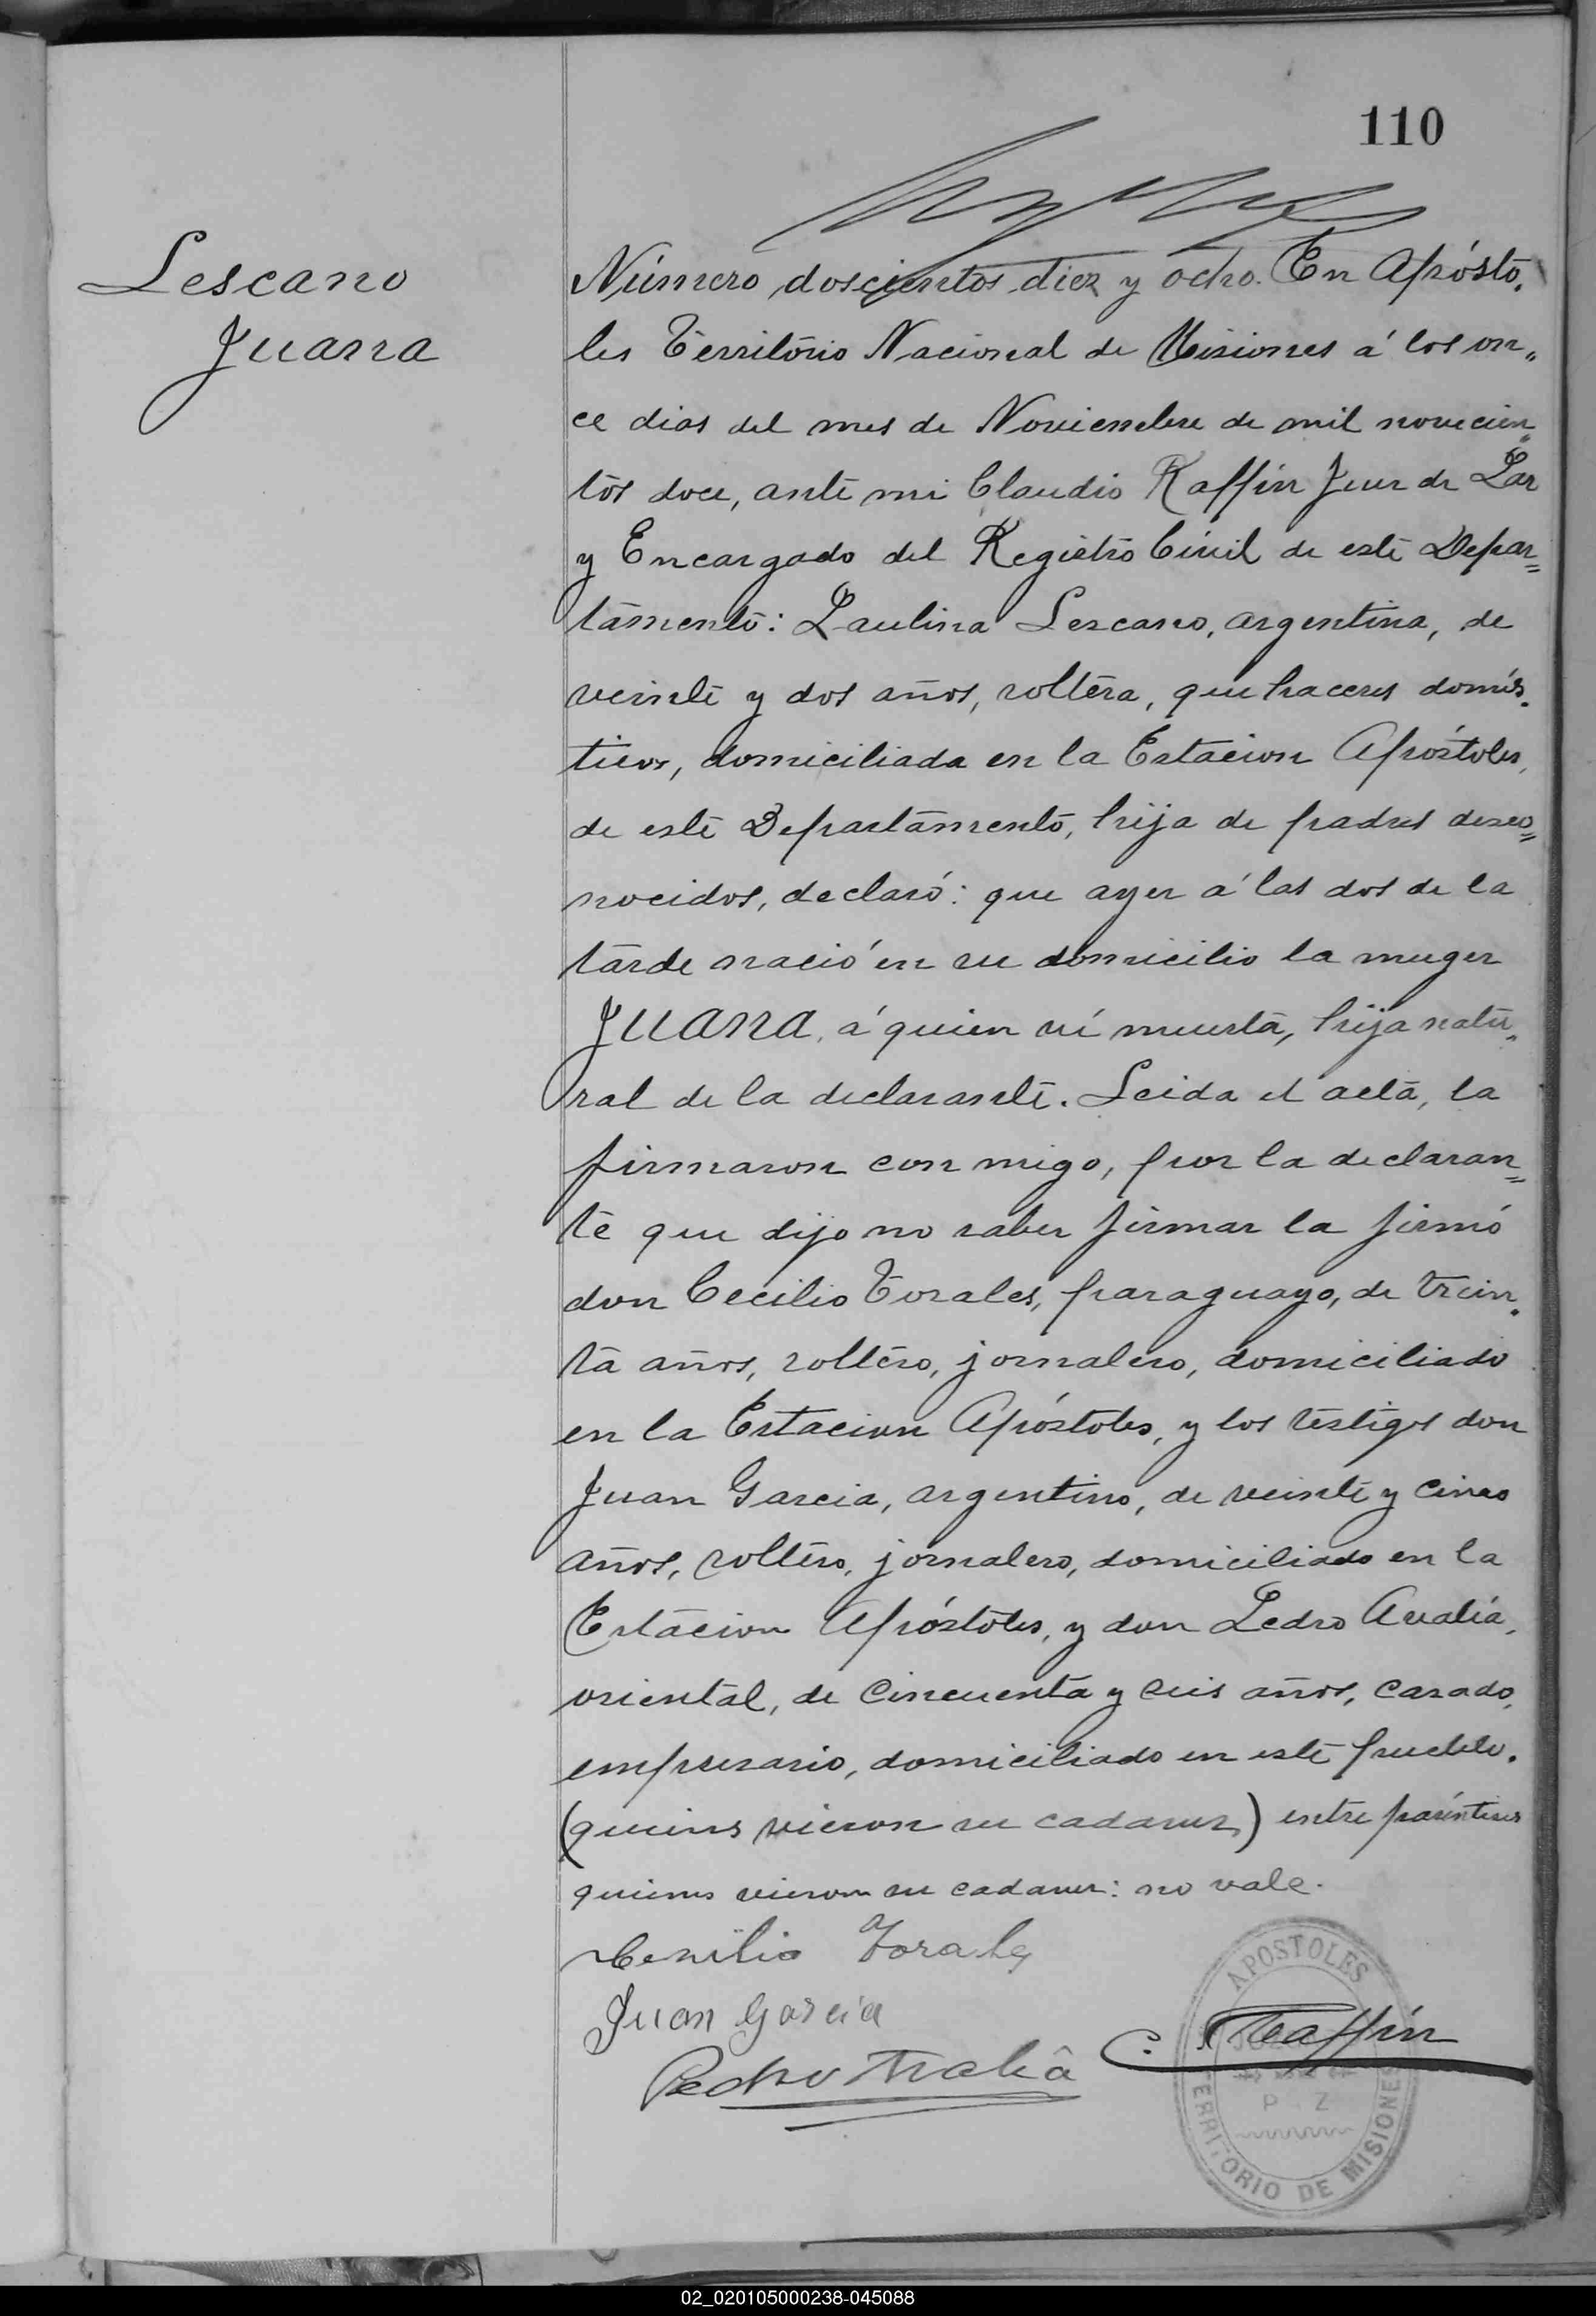 110
Lescano
Juana
Número doscientos diez y ocho. En Apósto„
les Territorio Nacional de Misiones á los on„
ce dias del mes de Noviembre de mil novecien„
tos doce, ante mi Claudio Raffin Juez de Paz
y Encargado del Registro Civil de este Depar=
tamento: Paulina Lezcano, argentina, de
veinte y dos años, soltera, quehaceres domés„
ticos, domiciliada en la Estacion Apóstoles,
de este Departamento, hija de padres desco=
nocidos, declaró: que ayer á las dos de la
tarde nació en su domicilio la muger
JUANA, á quien ví muerta, hija natu„
ral de la declarante. Leida el acta, la
firmaron con migo, por la declaran=
te que dijo no saber firmar la firmó
don Cecilio Torales, paraguayo, de trein„
ta años, soltero, jornalero, domiciliado
en la Estacion Apóstoles, y los testigos don
Juan Garcia, argentino, de veinte y cinco
años, soltero, jornalero, domiciliado en la
Estacion Apóstoles, y don Pedro
oriental, de cincuenta y seis años, casado,
empresario, domiciliado en este pueblo.
(quienes vieron su cadaver) entre paréntesis
quienes vieron su cadaver: no vale.
Torales
Juan Garcia
Pedro
C. Raffin
APOSTOLES
P Z
TERRITORIO DE MISIONES
02_020105000238-045088